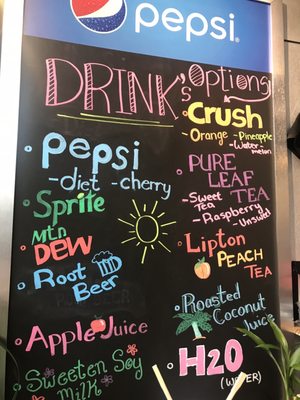 pepsi
DRINK's Options
Pepsi
- diet - cherry
Sprite
Mtn
DEW
Root
Beer
Apple Juice
Sweeten Soy
Milk
Crush
- Orange - Pineapple
- Water-
melon
PURE
LEAF
TEA
- Sweet
Tea
- Raspberry
- Unsweet
Lipton
PEACH
TEA
Roasted
Coconut
Juice
H2O
(WATER)